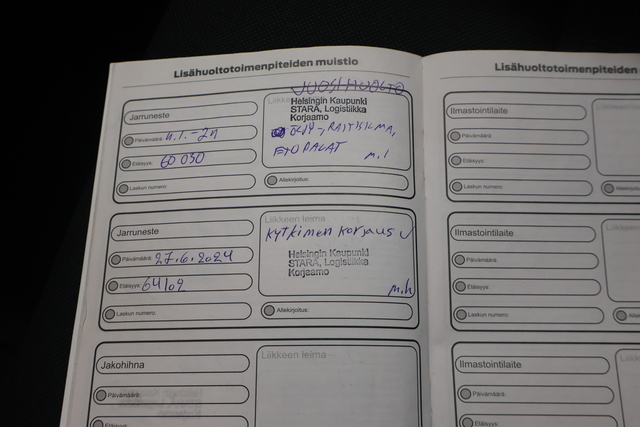 Lisähuoltotoimenpiteiden muistio
Jarruneste
Päivämäärä:
Etäisyys: 60 050
Laskun numero:
VUOSIHUOLTO
Liikkeen
Helsingin Kaupunki
STARA, Logistiikka
Korjaamo
ÖLJY-, RAITISILMA,
ETUPALAT
Allekirjoitus:
Liikkeen leima
Jarruneste
Päivämäärä: 27.6.2024
Etäisyys: 64102
Laskun numero:
Kytkimen korjaus
Helsingin Kaupunki
STARA, Logistiikka
Korjaamo
Allekirjoitus:
Jakohihna
Päivämäärä:
Etäisyys:
Liikkeen leima
Lisähuoltotoimenpiteiden
Ilmastointilaite
Päivämäärä:
Etäisyys:
Laskun numero:
Ilmastointilaite
Päivämäärä:
Etäisyys:
Laskun numero:
Ilmastointilaite
Päivämäärä:
Etäisyys: